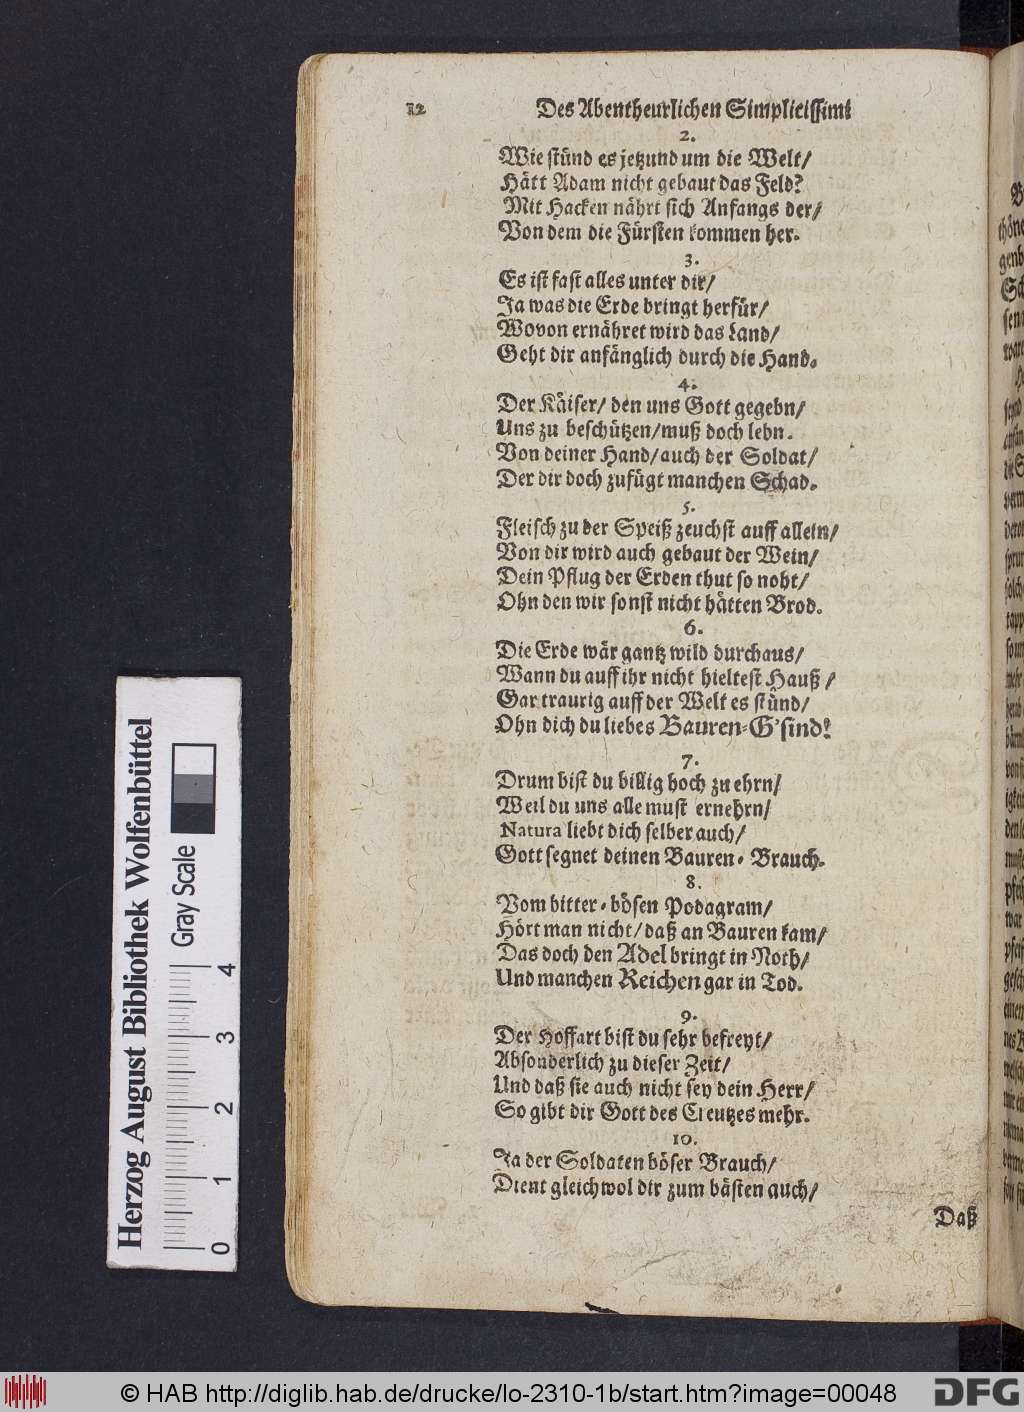 12 Des Abentheurlichen Simplicissimi
2.
Wie stünd es jetzund um die Welt/
Hätt Adam nicht gebaut das Feld?
Mit Hacken nährt sich Anfangs der/
Von dem die Fürsten kommen her.
3.
Es ist fast alles unter dir/
Ja was die Erde bringt herfür/
Wovon ernähret wird das Land/
Geht dir anfänglich durch die Hand.
4.
Der Käiser/ den uns Gott gegebn/
Uns zu beschützen/ muß doch lebn.
Von deiner Hand/ auch der Soldat/
Der dir doch zufügt manchen Schad.
5.
Fleisch zu der Speiß zeuchst auff allein/
Von dir wird auch gebaut der Wein/
Dein Pflug der Erden thut so noht/
Ohn den wir sonst nicht hätten Brod.
6.
Die Erde wär gantz wild durchaus/
Wann du auff ihr nicht hieltest Hauß/
Gar traurig auff der Welt es stünd/
Ohn dich du liebes Bauren-G'sind!
7.
Drum bist du billig hoch zu ehrn/
Weil du uns alle must ernehrn/
Natura liebt dich selber auch/
Gott segnet deinen Bauren-Brauch.
8.
Vom bitter-bösen Podagram/
Hört man nicht/ daß an Bauren kam/
Das doch den Adel bringt in Noth/
Und manchen Reichen gar in Tod.
9.
Der Hoffart bist du sehr befreyt/
Absonderlich zu dieser Zeit/
Und daß sie auch nicht sey dein Herr/
So gibt dir Gott des Creutzes mehr.
10.
Ja der Soldaten böser Brauch/
Dient gleichwol dir zum bästen auch/
Daß
Herzog August Bibliothek Wolfenbüttel
Gray Scale
0 1 2 3 4
© HAB http://diglib.hab.de/drucke/lo-2310-1b/start.htm?image=00048
DFG